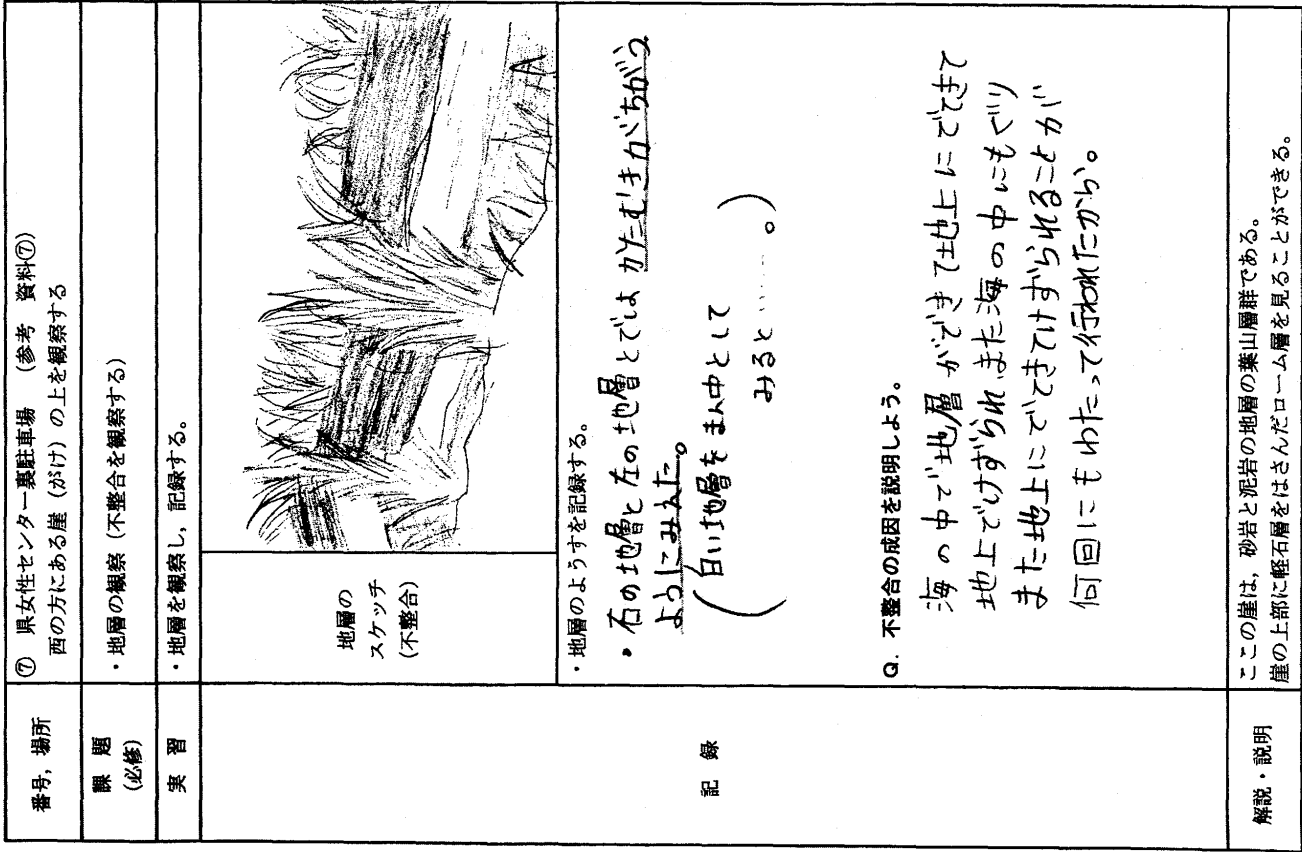 番号，場所
⑦ 県女性センター裏駐車場 （参考 資料⑦）
西の方にある崖（がけ）の上を観察する
課題
（必修）
・地層の観察（不整合を観察する）
実習
・地層を観察し，記録する。
記録
地層の
スケッチ
（不整合）
・地層のようすを記録する。
・右の地層と左の地層とではかたむきがちがう
ようにみえた。
（白い地層をまん中として
みると……。）
Q. 不整合の成因を説明しよう。
海の中で地層ができて地上にでてきて
地上でけずられ、また海の中にもぐり
また地上にでてきてけずられることが
何回にもわたって行われたから。
解説・説明
ここの崖は，砂岩と泥岩の地層の葉山層群である。
崖の上部に軽石層をはさんだローム層を見ることができる。